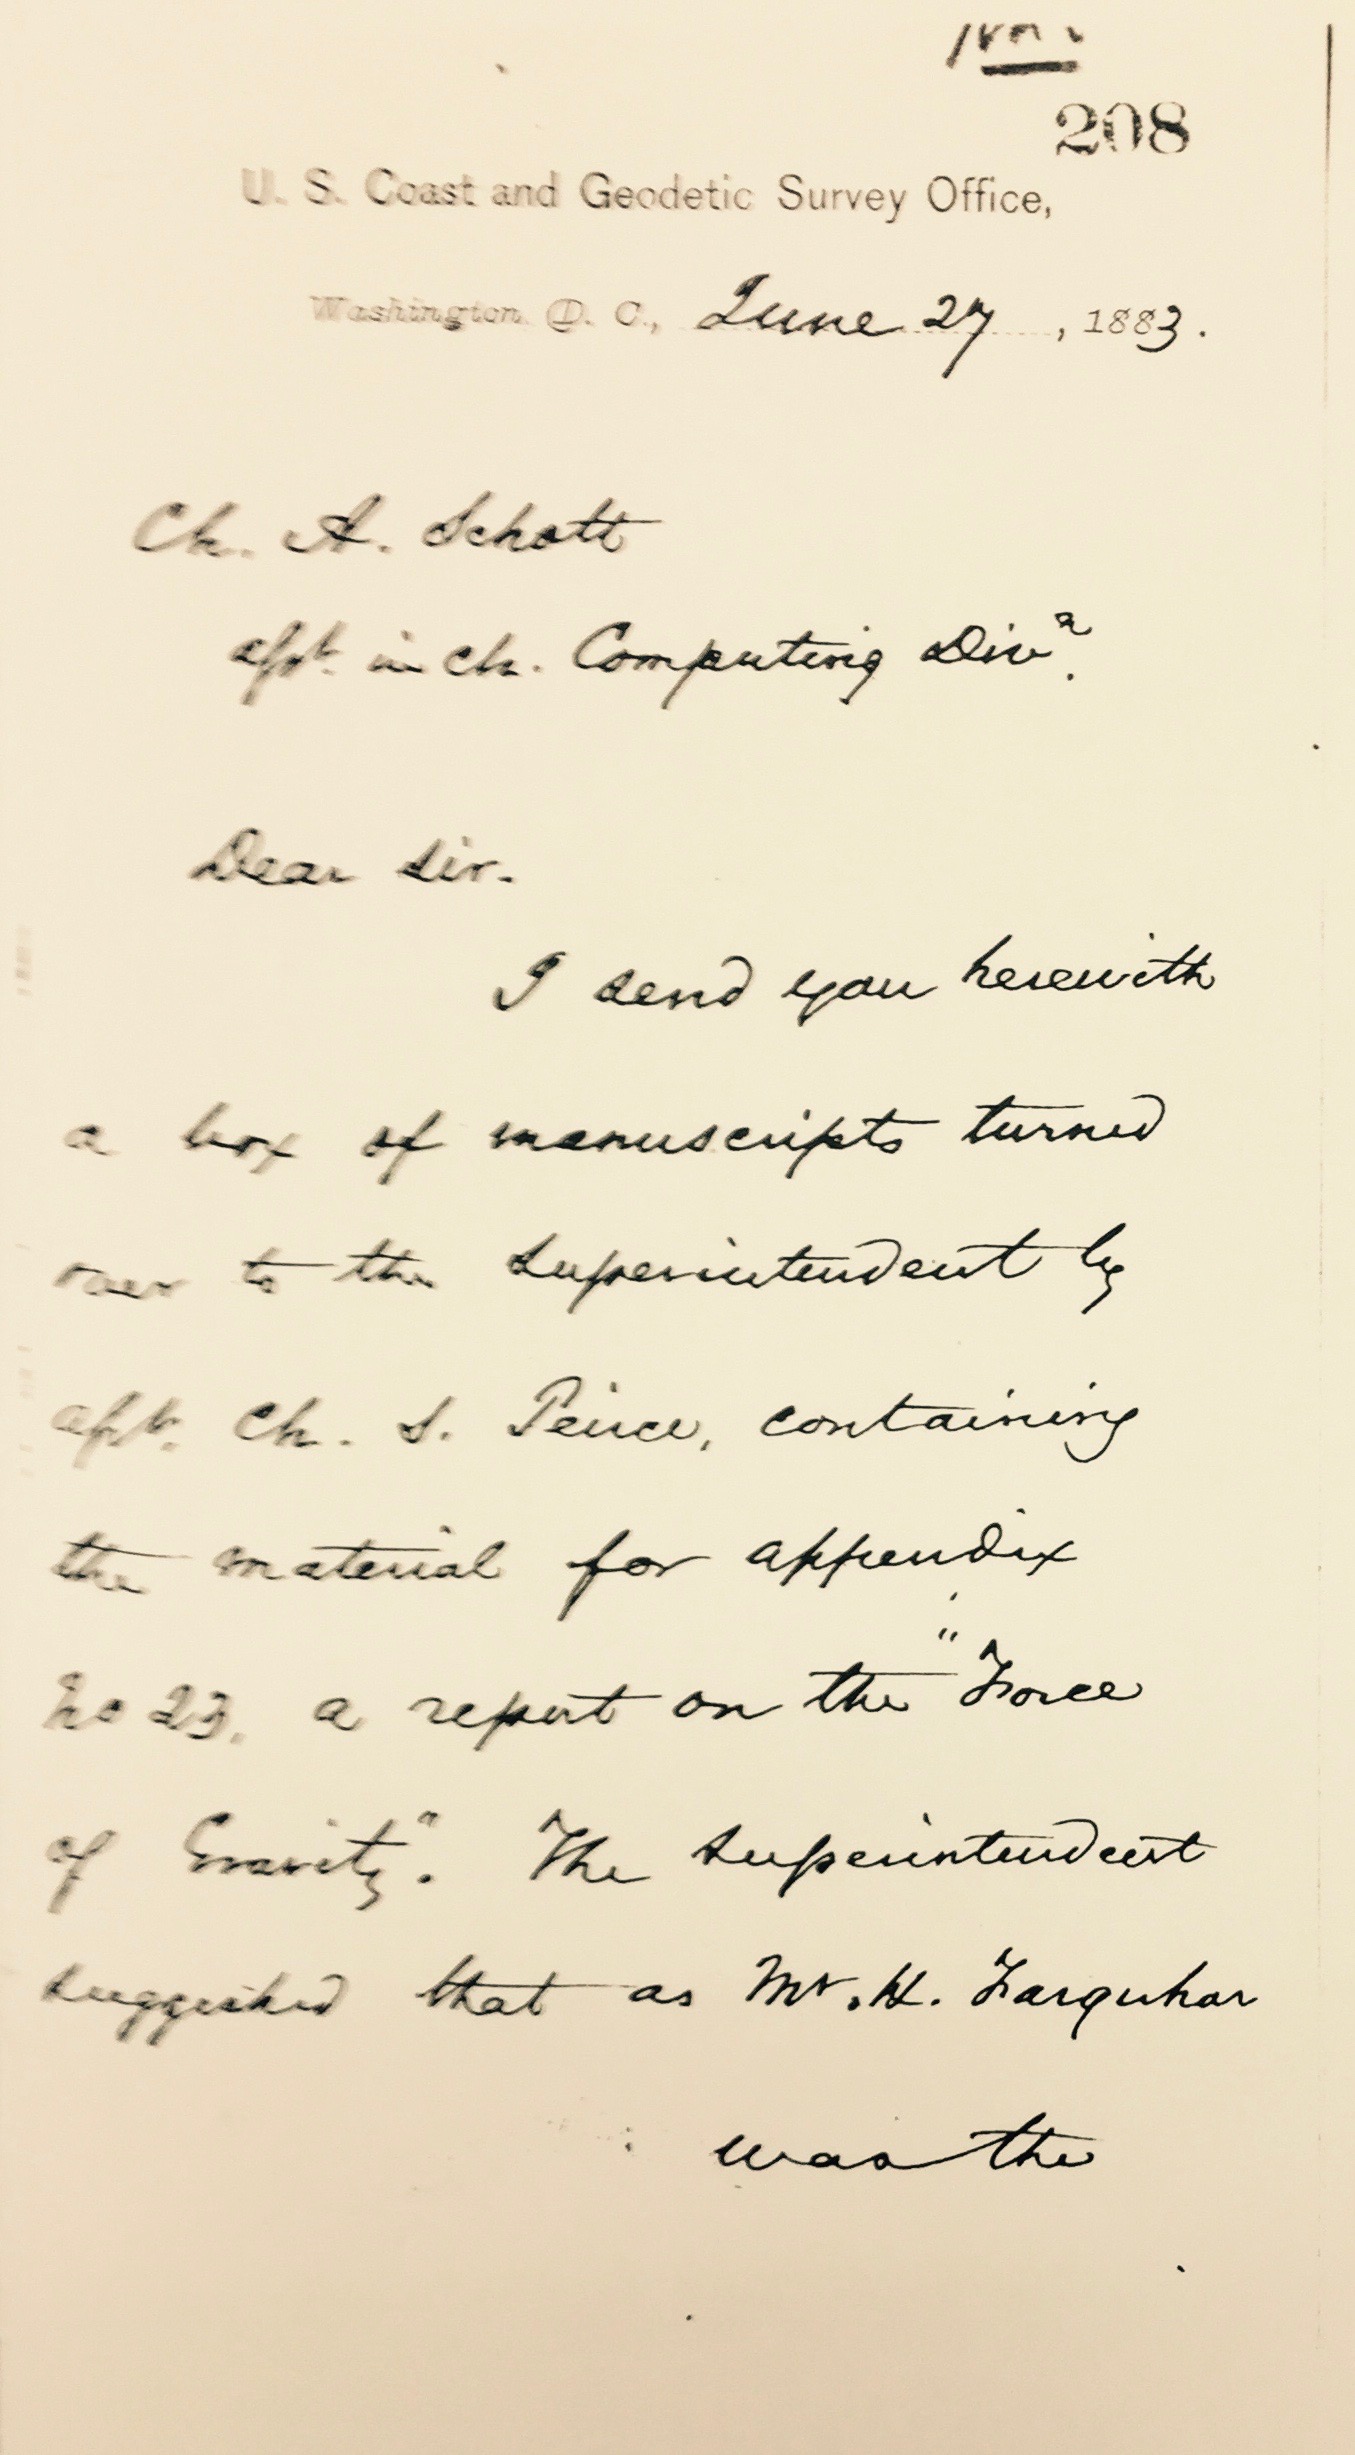 208
U. S. Coast and Geodetic Survey Office,
Washington D. C., June 27, 1883.
Ch. A. Schott
Asst. in ch. Computing Divn.
Dear Sir.
I send you herewith
a box of manuscripts turned
over to the Superintendent by
Asst. Ch. S. Peirce, containing
the material for appendix
No 23. a report on the "Force
of Gravity". The Superintendent
suggested that as Mr. H. Farquhar
was the